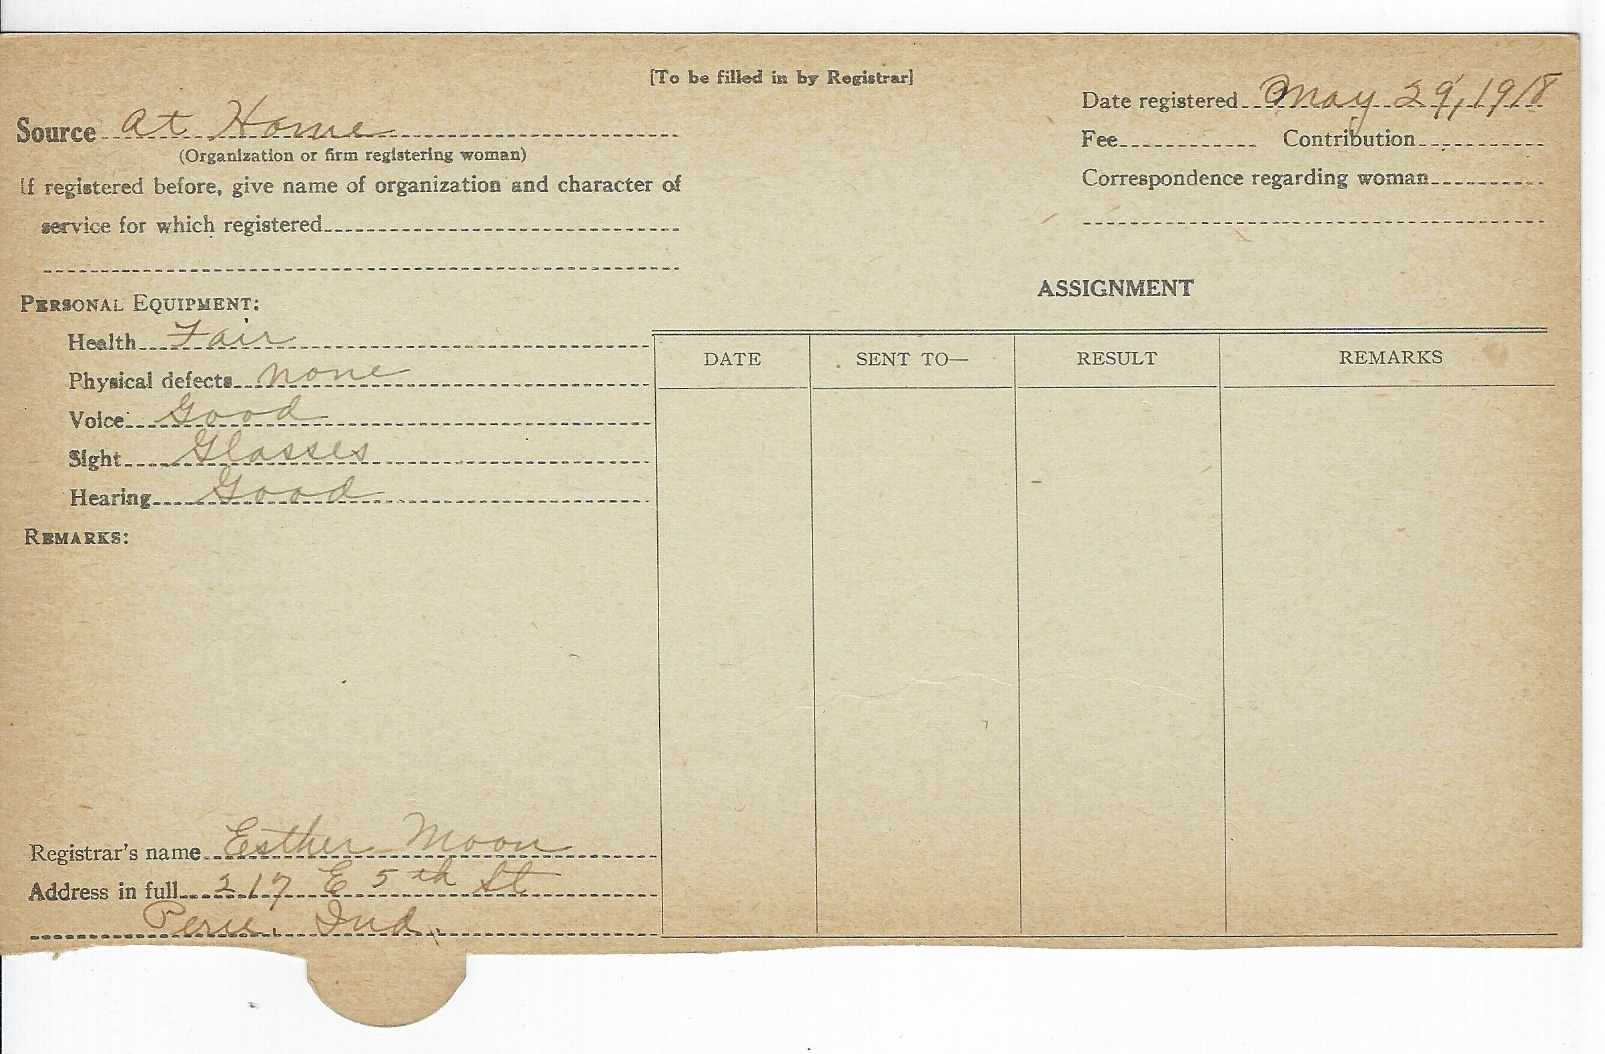 [To be filled in by Registrar]
Source at Home
(Organization or firm registering woman)
If registered before, give name of organization and character of
service for which registered
Date registered May 29, 1918
Fee Contribution
Correspondence regarding woman
PERSONAL EQUIPMENT:
Health Fair
Physical defects none
Voice Good
Sight Glasses
Hearing Good
REMARKS:
ASSIGNMENT
DATE SENT TO— RESULT REMARKS
Registrar's name Esther Moon
Address in full 217 E 5th St
Peru, Ind.